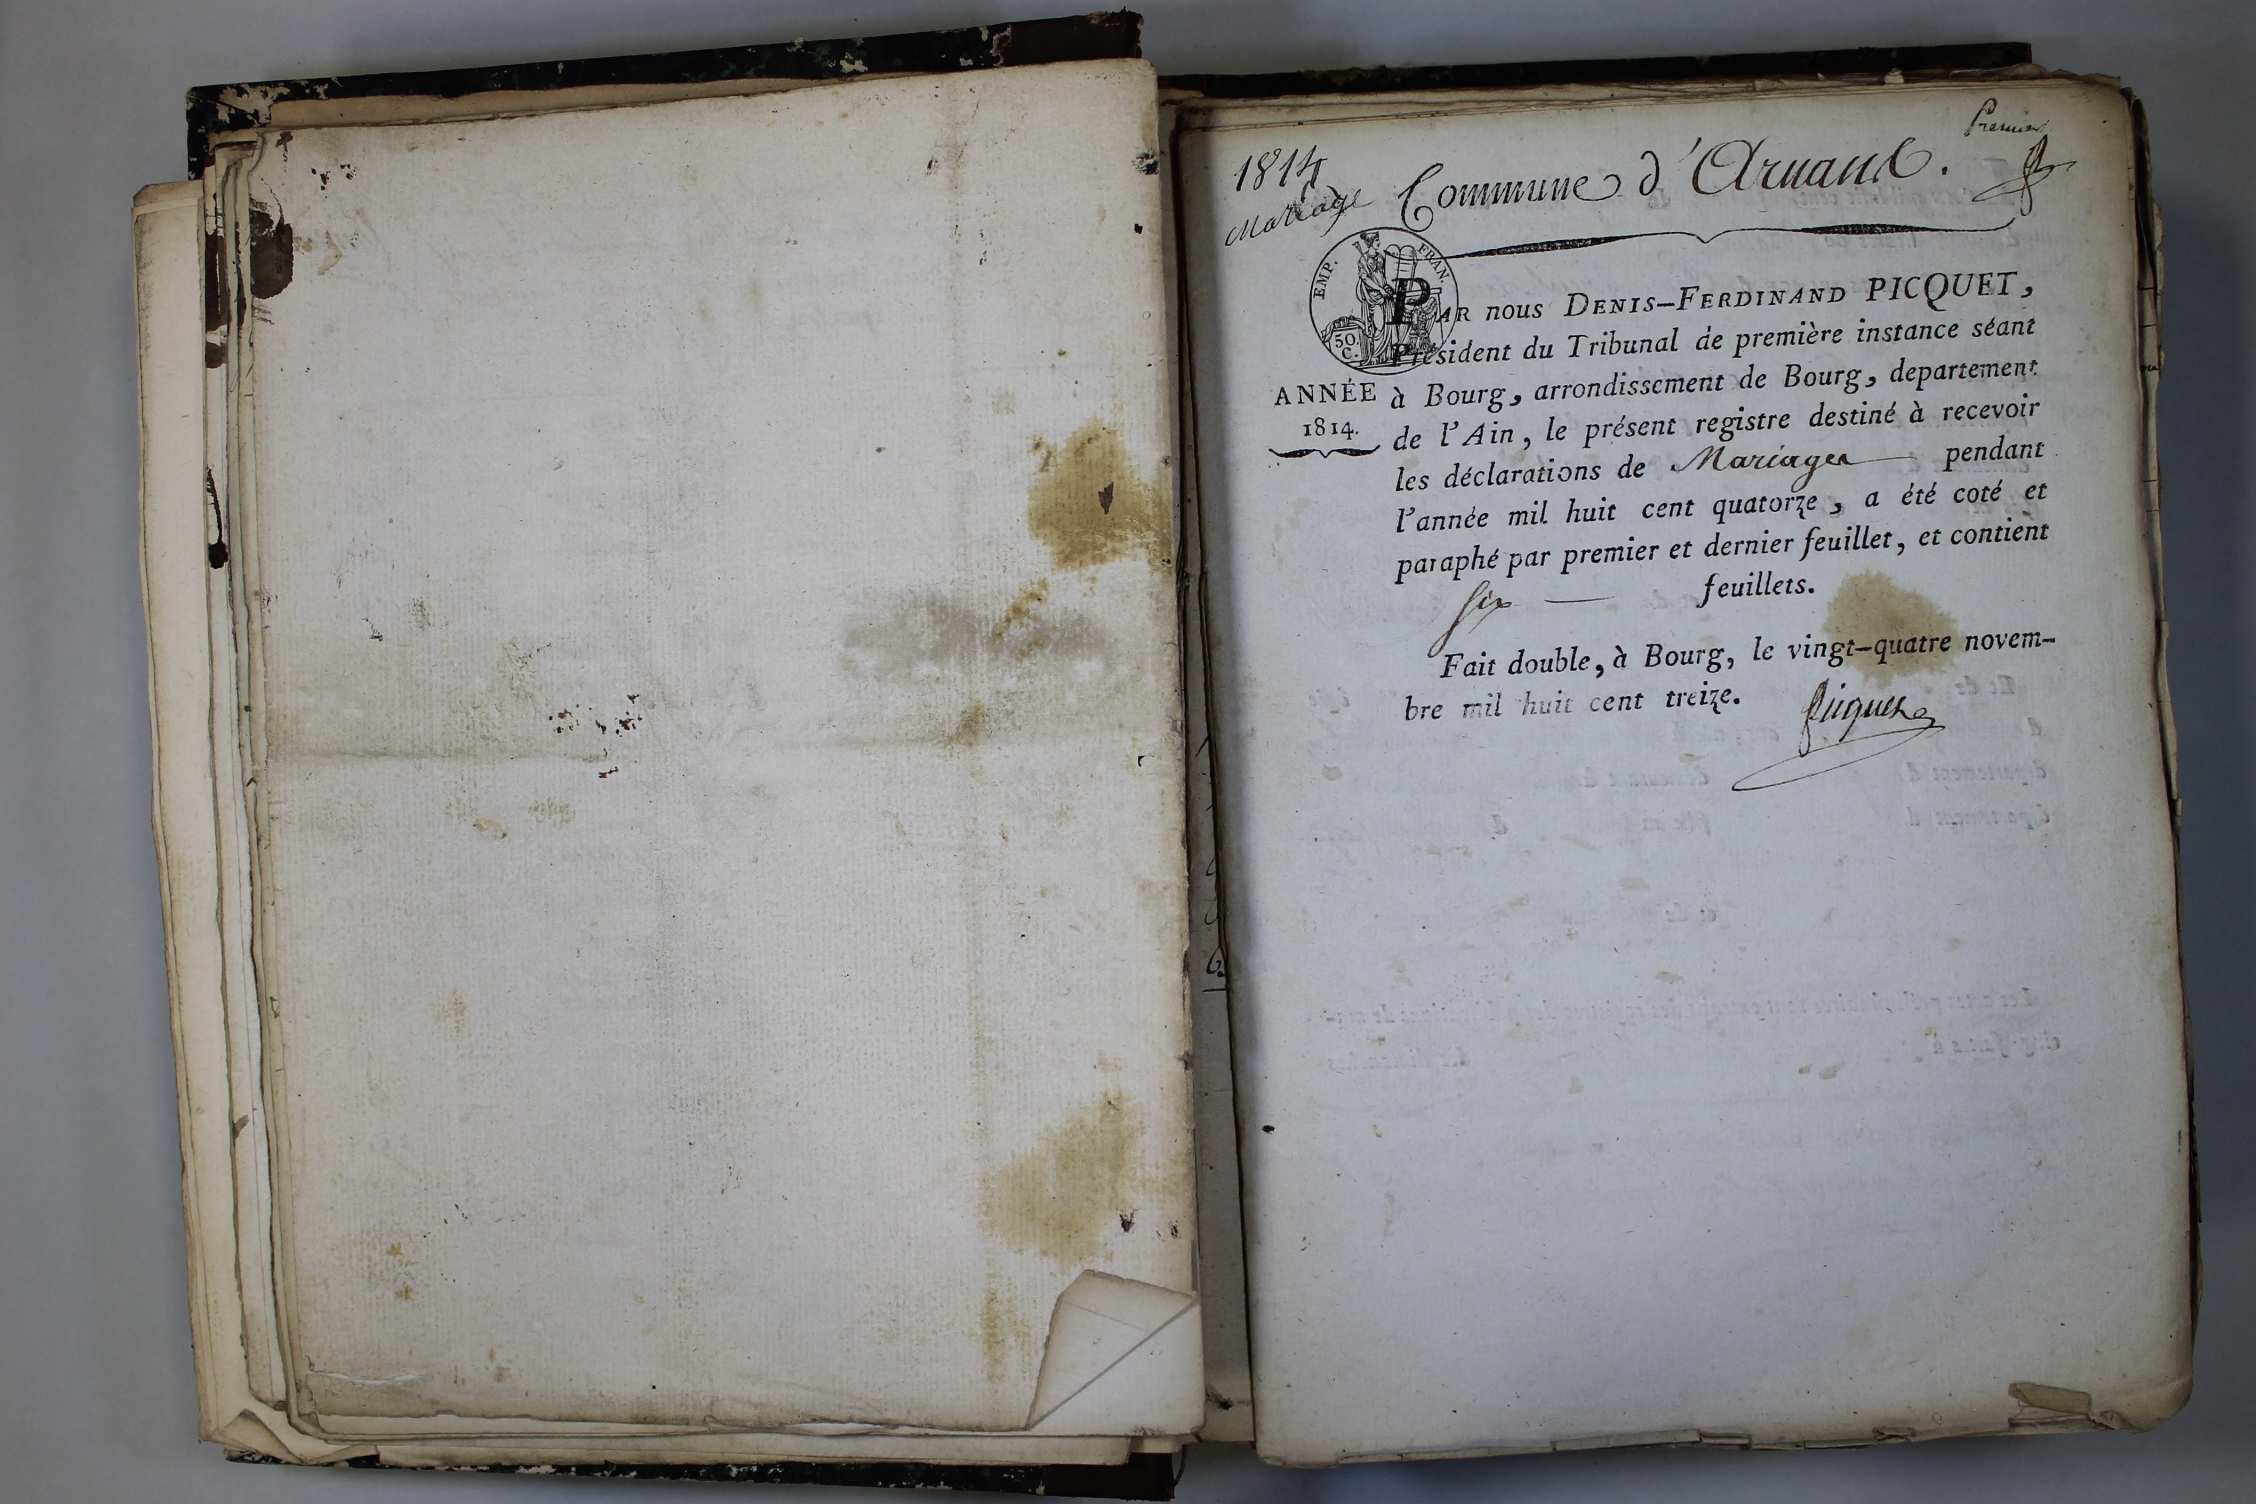 Premier
1814
Mariage
Commune d'Arnans.
EMP. FRAN.
50.
C.
PAR nous DENIS-FERDINAND PICQUET,
Président du Tribunal de première instance séant
ANNÉE
1814.
à Bourg, arrondissement de Bourg, departement
de l'Ain, le présent registre destiné à recevoir
les déclarations de Mariages pendant
l'année mil huit cent quatorze, a été coté et
paraphé par premier et dernier feuillet, et contient
six feuillets.
Fait double, à Bourg, le vingt-quatre novem-
bre mil huit cent treize.
Picquet